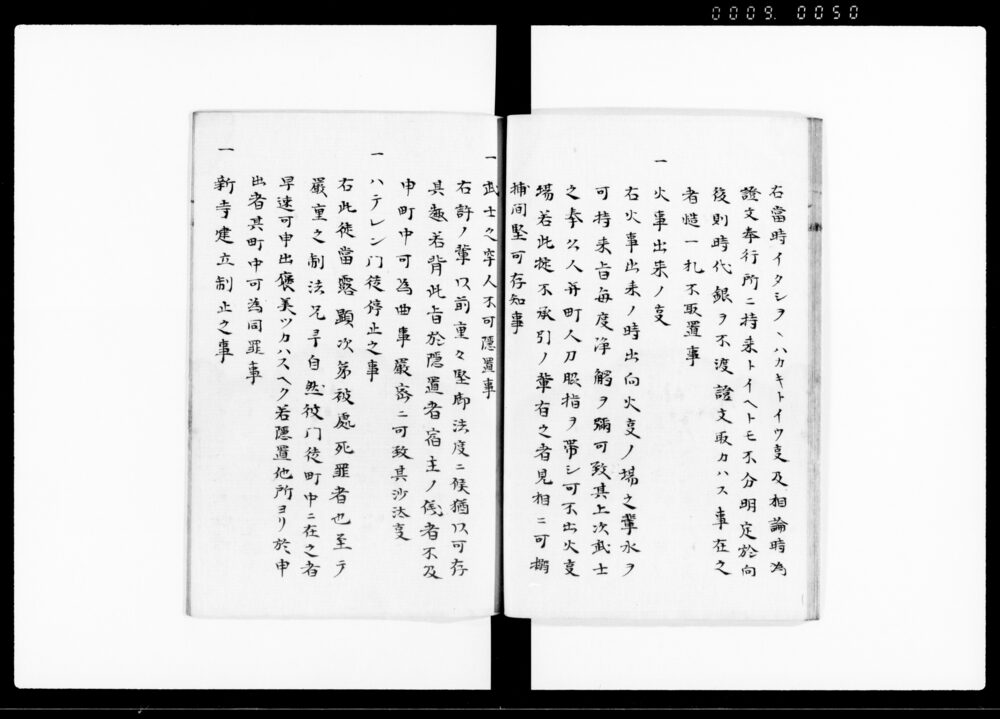 0009. 0050
右當時イタシヲハカキトイウ叓及相論時為
證文奉行所ニ持来トイヘトモ不分明定於向
後則時代銀ヲ不渡證文取カハス事在之
者慥一札不取置事
一 火事出来ノ叓
右火事出来ノ時出向火叓ノ場之輩水ヲ
可持来旨毎度浄觸ヲ彌可致其上次武士
之奉公人并町人刀脇指ヲ帯シ可不出火叓
場若此掟不承引ノ輩有之者見相ニ可搦
捕間堅可存知事
一 武士之牢人不可隠置事
右許ノ輩以前重々堅御法度ニ候猶以可存
其趣若背此旨於隠置者宿主ノ儀者不及
申町中可為曲事嚴密ニ可致其沙汰叓
一 ハテレン門徒停止之事
右此徒當露顕次第被處死罪者也至テ
嚴重之制法兄弟自然彼門徒町中ニ在之者
早速可申出褒美ツカハスヘク若隠置他所ヨリ於申
出者其町中可為同罪事
一 新寺建立制止之事